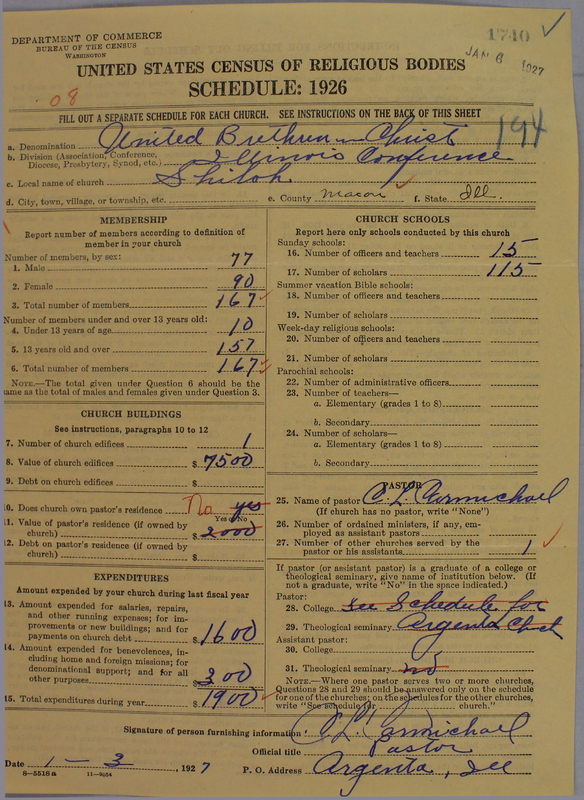 DEPARTMENT OF COMMERCE
BUREAU OF THE CENSUS
WASHINGTON
1740
JAN 6 1927
UNITED STATES CENSUS OF RELIGIOUS BODIES
SCHEDULE: 1926
08
FILL OUT A SEPARATE SCHEDULE FOR EACH CHURCH. SEE INSTRUCTIONS ON THE BACK OF THIS SHEET
194
a. Denomination United Brethren in Christ
b. Division (Association, Conference, Diocese, Presbytery, Synod, etc.) Illinois Conference
c. Local name of church Shiloh
d. City, town, village, or township, etc. e. County Macon f. State Ill.
MEMBERSHIP
Report number of members according to definition of
member in your church
Number of members, by sex:
1. Male 77
2. Female 90
3. Total number of members 167
Number of members under and over 13 years old:
4. Under 13 years of age 10
5. 13 years old and over 157
6. Total number of members 167
NOTE.—The total given under Question 6 should be the
same as the total of males and females given under Question 3.
CHURCH BUILDINGS
See instructions, paragraphs 10 to 12
7. Number of church edifices 1
8. Value of church edifices $ 7500
9. Debt on church edifices $
10. Does church own pastor's residence No yes
Yes or No
11. Value of pastor's residence (if owned by
church) $ 2000
12. Debt on pastor's residence (if owned by
church) $
EXPENDITURES
Amount expended by your church during last fiscal year
13. Amount expended for salaries, repairs,
and other running expenses; for im-
provements or new buildings; and for
payments on church debt $ 1600
14. Amount expended for benevolences, in-
cluding home and foreign missions; for
denominational support; and for all
other purposes $ 300
15. Total expenditures during year $ 1900
CHURCH SCHOOLS
Report here only schools conducted by this church
Sunday schools:
16. Number of officers and teachers 15
17. Number of scholars 115
Summer vacation Bible schools:
18. Number of officers and teachers
19. Number of scholars
Week-day religious schools:
20. Number of officers and teachers
21. Number of scholars
Parochial schools:
22. Number of administrative officers
23. Number of teachers—
a. Elementary (grades 1 to 8)
b. Secondary
24. Number of scholars—
a. Elementary (grades 1 to 8)
b. Secondary
PASTOR
25. Name of pastor C. L. Carmichael
(If church has no pastor, write "None")
26. Number of ordained ministers, if any, em-
ployed as assistant pastors
27. Number of other churches served by the
pastor or his assistants 1
If pastor (or assistant pastor) is a graduate of a college or
theological seminary, give name of institution below. (If
not a graduate, write "No" in the space indicated.)
Pastor:
28. College see Schedule for
29. Theological seminary Argenta Church
Assistant pastor:
30. College
31. Theological seminary no
NOTE.—Where one pastor serves two or more churches,
Questions 28 and 29 should be answered only on the schedule
for one of the churches; on the schedules for the other churches,
write "See schedule for church."
Signature of person furnishing information C. L. Carmichael
Official title Pastor
Date 1-3, 1927 P. O. Address Argenta, Ill
8—5518a 11—9054